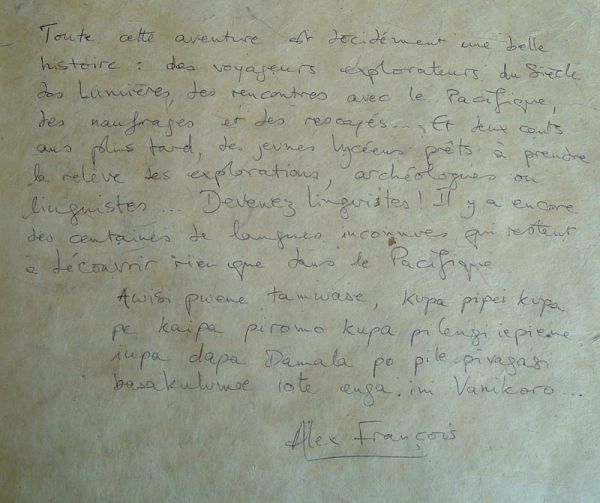 Toute cette aventure est décidément une belle
histoire : des voyageurs explorateurs du Siècle
des Lumières, des rencontres avec le Pacifique,
des naufrages et des rescapés... Et deux cents
ans plus tard, des jeunes lycéens prêts à prendre
la relève des explorations, archéologues ou
linguistes... Devenez linguistes ! Il y a encore
des centaines de langues inconnues qui restent
à découvrir rien que dans le Pacifique
Awisi pwene tamwase, kupa pipei kupa
pe kaipa piromo kupa pilengi iepiene
iupa dapa Damala po pile pivagasi
basakulumoe iote enga ini Vanikoro...
Alex François